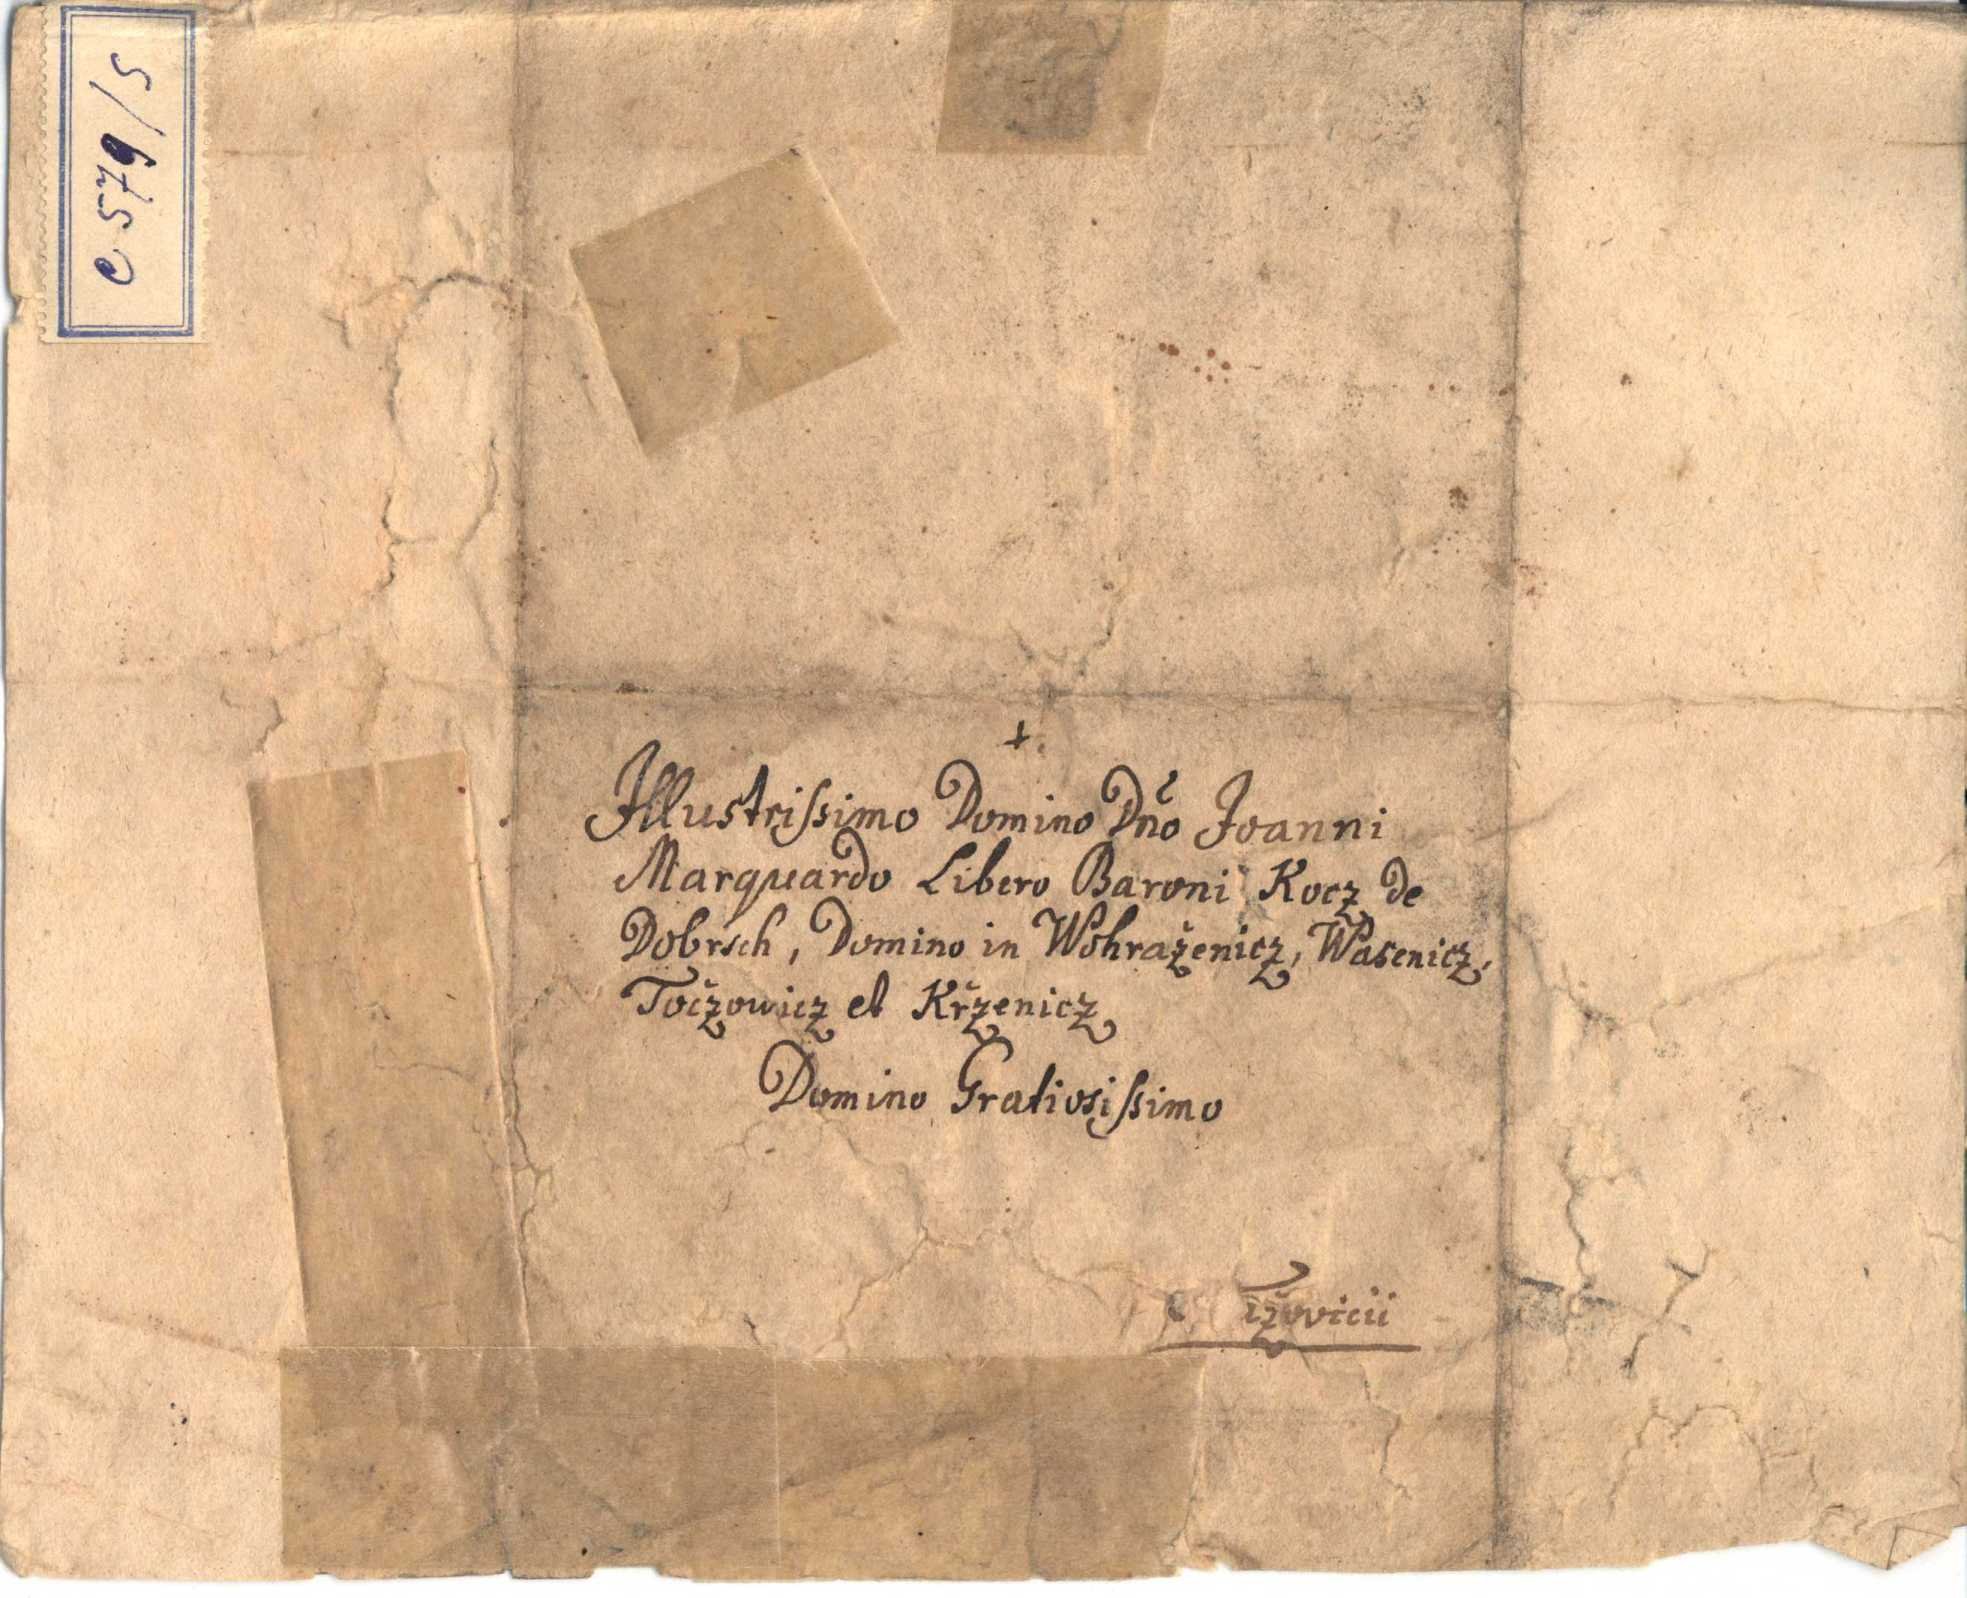 C 579/5
+
Illustrissimo Domino Dño Joanni
Marquardo Libero Baroni Kocz de
Dobrsch, Domino in Wohraženicz, Wacenicz,
Točzowicz et Kržzenicz
Domino Gratiosissimo
Tižovicii